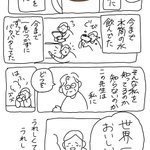 今まで
水筒の水
飲んでた
今まで
そんな私を
知ってるのか
知らないのか
この先生は
私に
世界一
おいしい
うれしくて
うれし